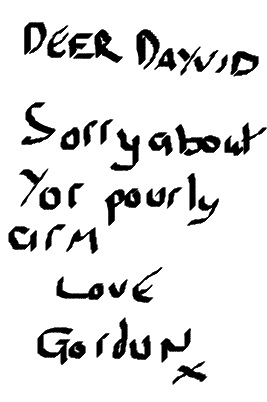 DEER DAYVID
Sorry about
Yor pourly
arm
Love
Gordun
x